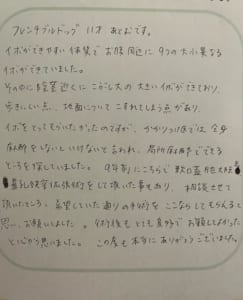 フレンチブルドッグ 11才 あとむです。
イボができやすい体質でお腹周辺に9つの大小異なる
イボができていました。
その中に陰茎近くにこぶし大の大きいイボができており、
歩きにくい点、地面についてこすれてしまう点があり、
イボをとってもらいたかったのですが、かかりつけ医では全身
麻酔をしないといけないと言われ、局所麻酔でできる
ところを探していました。9年前にこちらで軟口蓋肥大症
鼻孔狭窄拡張術をして頂いた事もあり、相談させて
頂いたところ、希望していた通りの手術をここならしてもらえると
思い、お願いしました。術後もとても良好でお願いしてよかった
と心から思いました。この度も本当にありがとうございました。